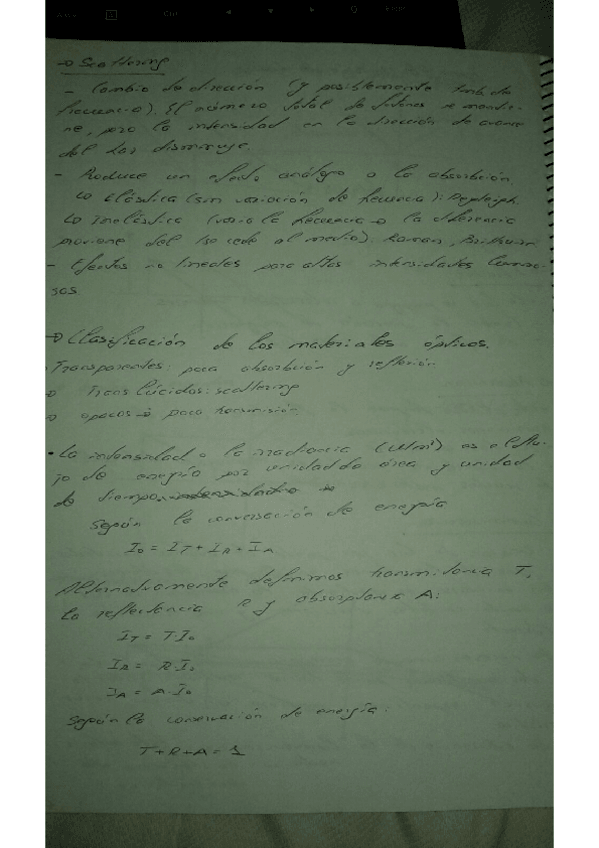 → Scattering
- Cambio de dirección (y posiblemente tamb. de
frecuencia). El número total de fotones se mantie-
ne, pero la intensidad en la dirección de avance
del haz disminuye.
- Produce un efecto análogo a la absorción
↳ Elástica (sin variación de frecuencia): Rayleigh.
↳ Inelástica (varia la frecuencia → la diferencia
proviene del (se cede al medio). Raman, Brillouin
- Efectos no lineales para altas intensidades lumino-
sas.
→ Clasificación de los materiales ópticos.
Transparentes: poca absorción y reflexión
→ Translúcidos: scattering
→ opacos → poca transmisión.
• La intensidad o la irradiancia (W/m²) es el flu-
jo de energía por unidad de área y unidad
de tiempo.
Según la conversación de energía
I₀ = I_T + I_R + I_A
Alternativamente definimos transmitancia T,
la reflectancia R y absorptancia A:
I_T = T·I₀
I_R = R·I₀
I_A = A·I₀
Según la conservación de energía:
T+R+A = 1